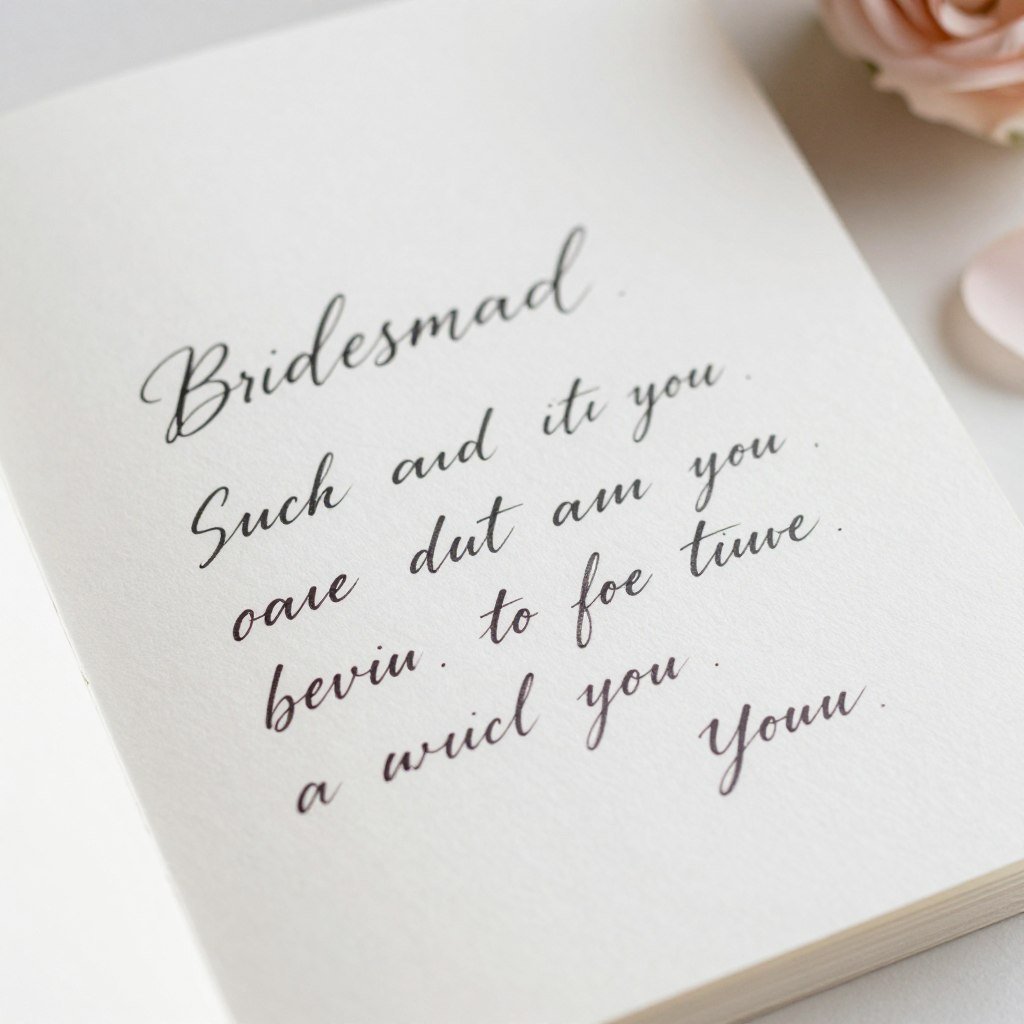 Bridesmad.
Such aud iti you.
oaue dut am you.
beviu. to foe tiuwe.
a wuicl you.
Youu.